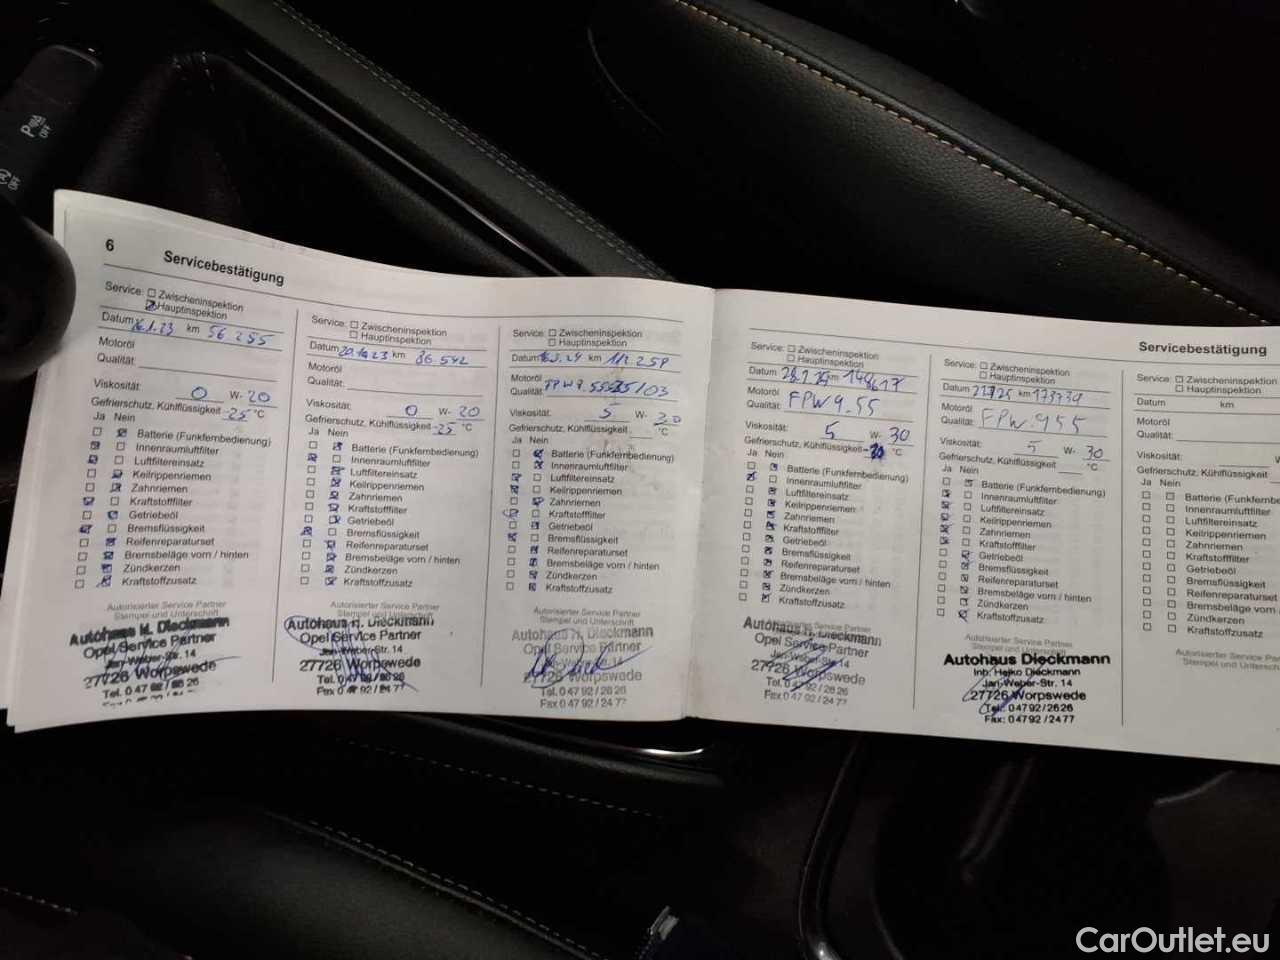 OFF
OFF
6
Servicebestätigung
Service: Zwischeninspektion
Hauptinspektion
Datum 1.23 km 56 255
Motoröl
Qualität:
Viskosität: 0 W- 20
Gefrierschutz, Kühlflüssigkeit -25 °C
Ja Nein
Batterie (Funkfernbedienung)
Innenraumluftfilter
Luftfiltereinsatz
Keilrippenriemen
Zahnriemen
Kraftstofffilter
Getriebeöl
Bremsflüssigkeit
Reifenreparaturset
Bremsbeläge vorn / hinten
Zündkerzen
Kraftstoffzusatz
Autorisierter Service Partner
Stempel und Unterschrift
Autohaus H. Dieckmann
Opel Service Partner
Jan-Weber-Str. 14
27726 Worpswede
Tel. 0 47 92 / 26 26
Service: Zwischeninspektion
Hauptinspektion
Datum 20.10.23 km 86.542
Motoröl
Qualität:
Viskosität: 0 W- 20
Gefrierschutz, Kühlflüssigkeit -25 °C
Ja Nein
Batterie (Funkfernbedienung)
Innenraumluftfilter
Luftfiltereinsatz
Keilrippenriemen
Zahnriemen
Kraftstofffilter
Getriebeöl
Bremsflüssigkeit
Reifenreparaturset
Bremsbeläge vorn / hinten
Zündkerzen
Kraftstoffzusatz
Autorisierter Service Partner
Autohaus H. Dieckmann
Opel Service Partner
Jan-Weber-Str. 14
27726 Worpswede
Tel. 0 47 92 / 26 26
Fax 0 47 92 / 24 77
Service: Zwischeninspektion
Hauptinspektion
Datum km 112.259
Motoröl
Qualität:
Viskosität: 5 W- 30
Gefrierschutz, Kühlflüssigkeit °C
Ja Nein
Batterie (Funkfernbedienung)
Innenraumluftfilter
Luftfiltereinsatz
Keilrippenriemen
Zahnriemen
Kraftstofffilter
Getriebeöl
Bremsflüssigkeit
Reifenreparaturset
Bremsbeläge vorn / hinten
Zündkerzen
Kraftstoffzusatz
Autorisierter Service Partner
Stempel und Unterschrift
Autohaus H. Dieckmann
Opel Service Partner
Jan-Weber-Str. 14
27726 Worpswede
Tel. 0 47 92 / 26 26
Fax 0 47 92 / 24 77
Servicebestätigung
Service: Zwischeninspektion
Hauptinspektion
Datum km
Motoröl
Qualität: FPW 9.55
Viskosität: 5 W- 30
Gefrierschutz, Kühlflüssigkeit °C
Ja Nein
Batterie (Funkfernbedienung)
Innenraumluftfilter
Luftfiltereinsatz
Keilrippenriemen
Zahnriemen
Kraftstofffilter
Getriebeöl
Bremsflüssigkeit
Reifenreparaturset
Bremsbeläge vorn / hinten
Zündkerzen
Kraftstoffzusatz
Autohaus H. Dieckmann
Opel Service Partner
Jan-Weber-Str. 14
27726 Worpswede
Tel. 0 47 92 / 26 26
Fax 0 47 92 / 24 77
Service: Zwischeninspektion
Hauptinspektion
Datum km 173739
Motoröl
Qualität: FPW.955
Viskosität: 5 W- 30
Gefrierschutz, Kühlflüssigkeit °C
Ja Nein
Batterie (Funkfernbedienung)
Innenraumluftfilter
Luftfiltereinsatz
Keilrippenriemen
Zahnriemen
Kraftstofffilter
Getriebeöl
Bremsflüssigkeit
Reifenreparaturset
Bremsbeläge vorn / hinten
Zündkerzen
Kraftstoffzusatz
Autorisierter Service Partner
Stempel und Unterschrift
Autohaus Dieckmann
Inh. Heiko Dieckmann
Jan-Weber-Str. 14
27726 Worpswede
Tel.: 04792/2626
Fax: 04792/2477
Service: Zwischeninspektion
Hauptinspektion
Datum km
Motoröl
Qualität:
Viskosität: W-
Gefrierschutz, Kühlflüssigkeit
Ja Nein
Batterie (Funkfernbed
Innenraumluftfilter
Luftfiltereinsatz
Keilrippenriemen
Zahnriemen
Kraftstofffilter
Getriebeöl
Bremsflüssigkeit
Reifenreparaturset
Bremsbeläge vorn
Zündkerzen
Kraftstoffzusatz
Autorisierter Service Partn
Stempel und Untersch
CarOutlet.eu